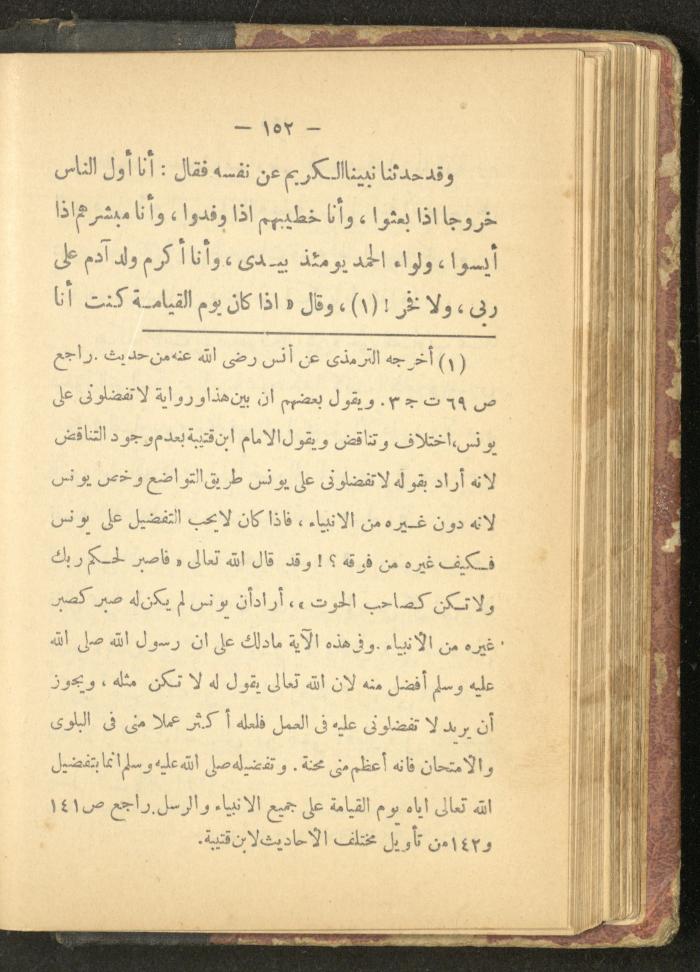 — ١٥٢ —
وقد حدثنا نبينا الكريم عن نفسه فقال : أنا أول الناس
خروجا اذا بعثوا ، وأنا خطيبهم اذا وفدوا ، وأنا مبشرهم اذا
أيسوا ، ولواء الحمد يومئذ بيدى ، وأنا أكرم ولد آدم على
ربى ، ولا فخر ! (١) ، وقال « اذا كان يوم القيامة كنت أنا
(١) أخرجه الترمذى عن أنس رضى الله عنه من حديث . راجع
ص ٦٩ ت ج ٣. ويقول بعضهم ان بين هذا ورواية لا تفضلونى على
يونس، اختلاف وتناقض ويقول الامام ابن قتيبة بعدم وجود التناقض
لانه أراد بقوله لا تفضلونى على يونس طريق التواضع وخص يونس
لانه دون غيره من الانبياء ، فاذا كان لا يحب التفضيل على يونس
فكيف غيره من فوقه ؟ ! وقد قال الله تعالى « فاصبر لحكم ربك
ولا تكن كصاحب الحوت » ، أراد أن يونس لم يكن له صبر كصبر
غيره من الانبياء . وفى هذه الآية مادلك على ان رسول الله صلى الله
عليه وسلم أفضل منه لان الله تعالى يقول له لا تكن مثله ، ويجوز
أن يريد لا تفضلونى عليه فى العمل فلعله أكثر عملا منى فى البلوى
والامتحان فانه أعظم منى محنة . وتفضيله صلى الله عليه وسلم انما بتفضيل
الله تعالى اياه يوم القيامة على جميع الانبياء والرسل. راجع ص ١٤١
و١٤٢ من تأويل مختلف الاحاديث لابن قتيبة.